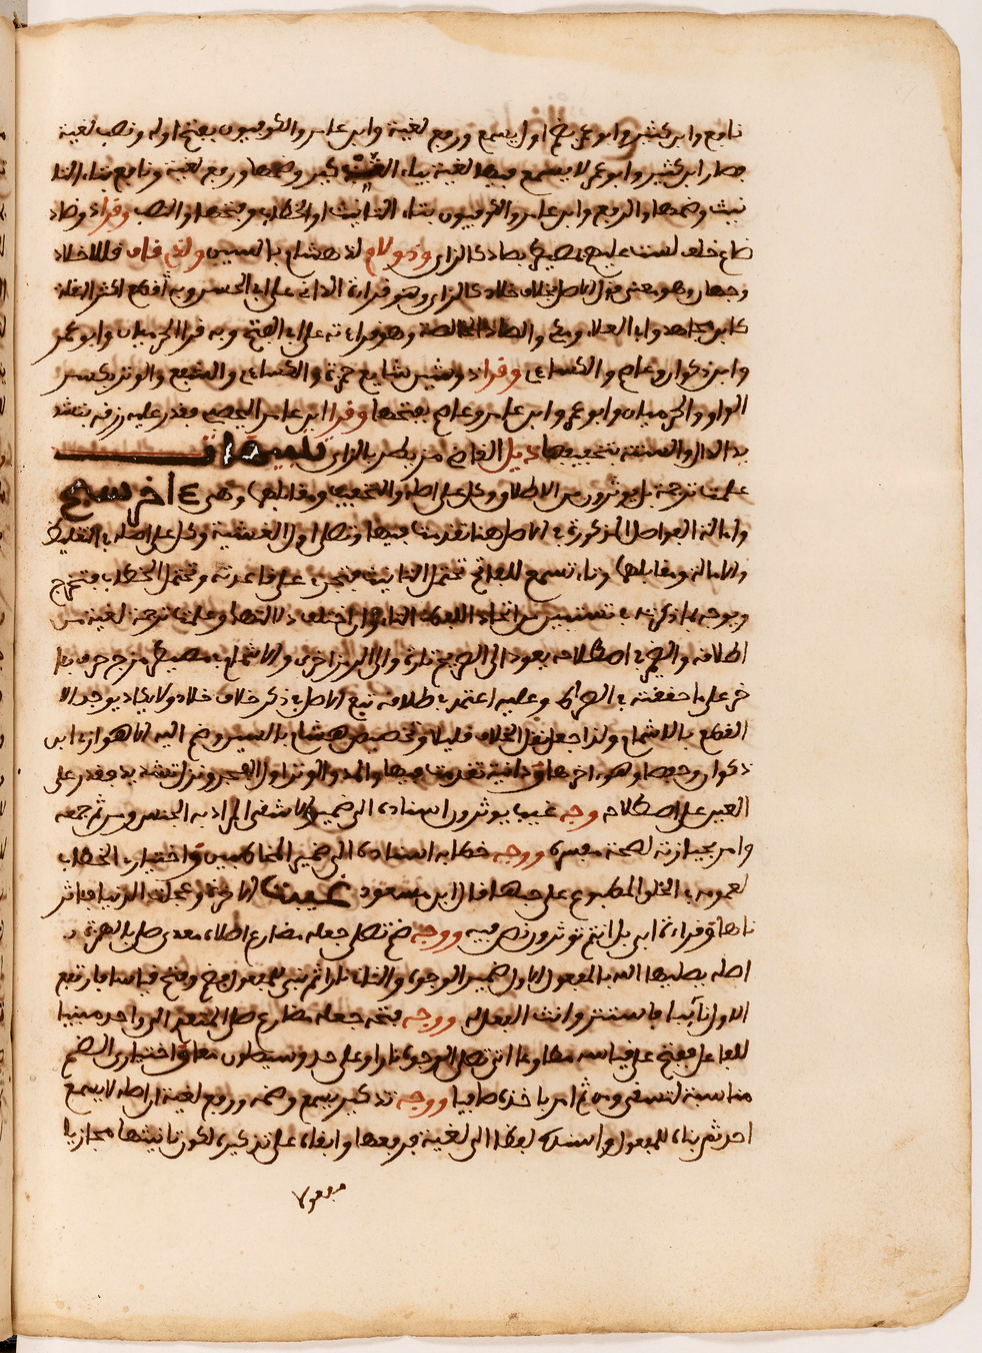 نافع وابن كثير وابو عمرو بضم اول يسمع ورفع لغية وابن عامر والكوفيون بفتح اوله ونصب لغية
فصار ابن كثير وابو عمرو لا يسمع فيها لغية بياء كير وضمها ورفع لغية ونافع بتاء التا
نيث وضمها والرفع وابن عامر والكوفيون بتاء التانيث او الخطاب وفتحها والنصب وقرا ذو ضاد
ضاع خلف لست عليهم بمصيطر بصاد كالزاي وذو لام لذ هشام بالسين وذو قاف قللا خلاد
وجهان وهو معنى قول الاصل بخلاف خلاد كالزاي وهو قراءة الداني على ابي الحسن وبه قطع اكثر النقلة
كابن مجاهد وابي العلاء ومكي والصاد الخالصة وهو قراءته على ابي الفتح وبه قرا الحرميان وابو عمرو
وابن ذكوان وعاصم والكسائي وقرا ذو شين شايع حمزة والكسائي والشفع والوتر بكسر
الواو والحرميان وابو عمرو وابن عامر وعاصم بفتحها وقرا ابن عامر اليحصبي فقدر عليه رزقه بتشد
يد الدال والستة بتخفيفها ذيل الفاضح من يطر بالزاي تنبيهات
علمت ترجمة بل يوثرون من الاطلاق وكل على اصله والتخفيف ومقابلها وهي ء اخر سبح
وامالة الفواصل المذكورة في الاصل هنا تقدمت فيها وتصلى اول الغشية وكل على اصله في التغليظ
والامالة ومقابلها وتاء تسمع للفاتح تحتمل التانيث فتجري على قاعدته وتحتمل الخطاب فتخرج
ويوجه بما ذكرته في تستبين من اتحاد اللفظ التا وان اختلفت دلالتها وعلمت ترجمة لغية من
اطلاقه والضم في اصطلاحه يعود الى الصريح تارة والى الرمز اخرى والاشمام في مصيطر مزج حرف باخر
خر على ما حققته في الصراط وعليه اعتمد في اطلاقه تبع الاصل في ذكر خلاف خلاد ولا يكاد يوجد الا
القطع بالاشمام ولذا جعل نقل الخلاف قليلا وتخصيص هشام بالسين وضم اليه الاهوازي ابن
ذكوان وحفصا وهو اخرها و دانية تقدمت فيها والمد والوتر اول الفجر ونزل تشديد فقدر على
العين على اصطلاحه وجه غيب يوثرون اسناده الى ضمير الاشقى المراد به الجنس ومن ثم جمعه
وامر بحيازته لصحة معنى ووجه خطابه اسناده الى ضمير المخاطبين واختيار الخطاب
لعمومه في الخلق المطبوع على حبها قال ابن مسعود عجلت لنا الدنيا
ناها وقراءة ابي بل انتم توثرون نص فيه ووجه ضم تصلى جعله مضارع اصلاه معدى صلي بالهمزة
اصله يصليها الله فالمفعول الاول ضمير الوجوه والثاني نارا ثم بني للمفعول فضم وفتح قياسا فارتفع
الاول نائبا فاستتر وانث الفعل له ووجه فتحه جعله مضارع صلي المتعدي الى واحد مبنيا
للفاعل ففتح على قياسه مطاوعا اي تصلى الوجوه نارا وعلى حد وسيصلون معا واختياري الضم
مناسبة لتسقى ومن ثم امر باخذه صافيا ووجه تذكير يسمع وضمه ورفع لغية ان اصله لا يسمع
احد ثم بناه للمفعول واسنده لفظا الى لغية فرفعها وابقاه على تذكيره لكون تانيثها مجازيا
مفعولا